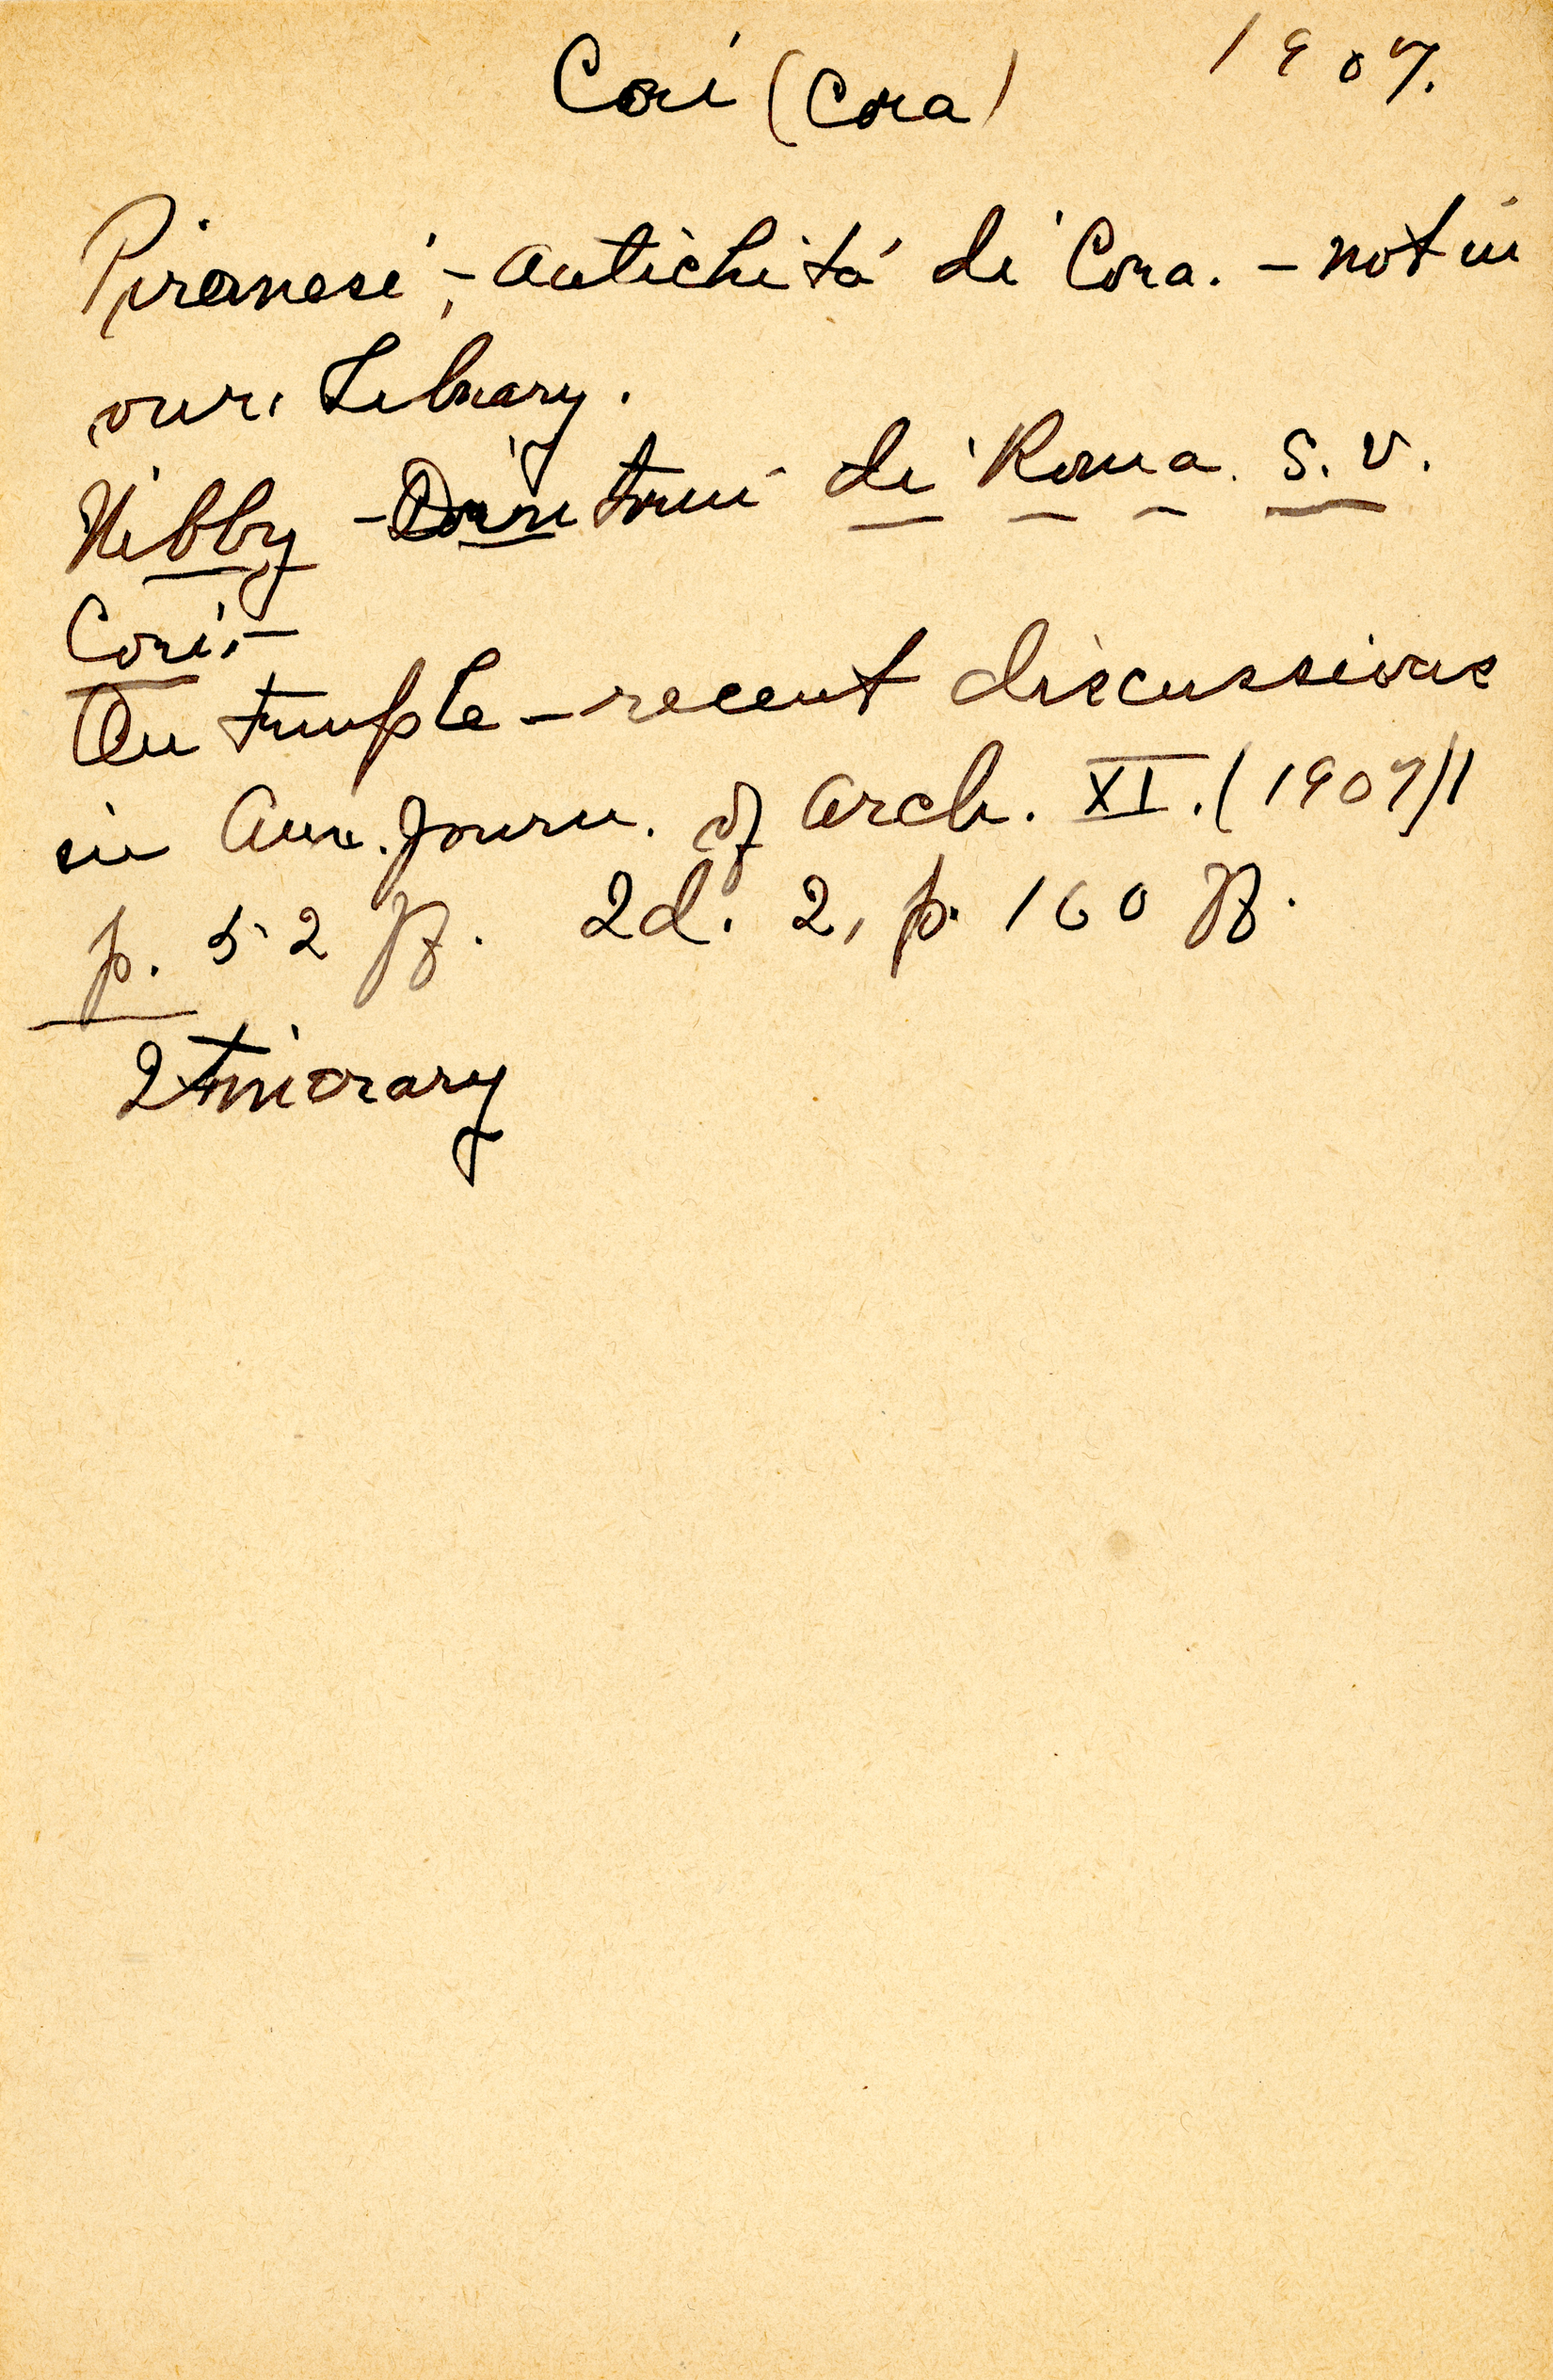 Cori (Cora) 1907.
Piranesi, - Antichità di Cora. - not in
our Library.
Nibby - Dintorni di Roma. s.v.
Cori, -
On temple - recent discussions
in Am. Journ. of Arch. XI. (1907) 1
p. 52 ff. Id. 2, p. 160 ff.
Itinerary